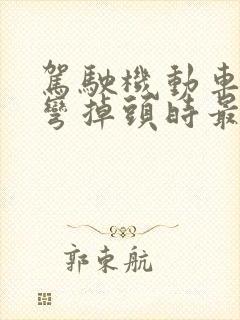 駕駛機動車
彎掉頭時最
郭東航